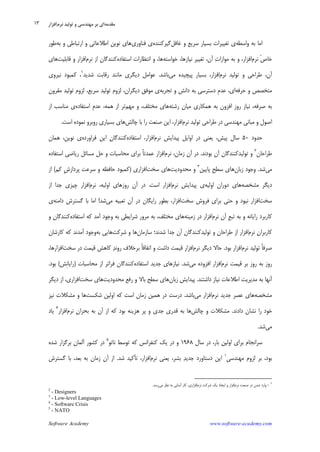 ۱۳
مقدمه‌ای بر مهندسی و تولید نرم‌افزار
اما به واسطه‌ی تغییرات بسیار سریع و غافل‌گیرکننده‌ی فناوری‌های نوین اطلاعاتی و ارتباطی و به‌طور
خاصّ نرم‌افزار، و به موازات آن، تغییر نیازها، خواسته‌ها، و انتظارات استفاده‌کنندگان از نرم‌افزار و قابلیت‌های
آن، طراحی و تولید نرم‌افزار، بسیار پیچیده می‌باشد. عوامل دیگری مانند رقابت شدید۱، کمبود نیروی
متخصص و حرفه‌ای، عدم دسترسی به دانش و تجربه‌ی موفق دیگران، لزوم تولید سریع، لزوم تولید مقرون
به صرفه، نیاز روز افزون به همکاری میان رشته‌های مختلف، و مهم‌تر از همه، عدم استفاده‌ی مناسب از
اصول و مبانی مهندسی در طراحی تولید نرم‌افزار، این صنعت را با چالش‌های بسیاری روبرو نموده است.
حدود ۵۰ سال پیش، یعنی در اوایل پیدایش نرم‌افزار، استفاده‌کنندگان این فراورده‌ی نوین، همان
طراحان۲ و تولیدکنندگان آن بودند. در آن زمان، نرم‌افزار عمدتاً برای محاسبات و حل مسائل ریاضی استفاده
می‌شد. وجود زبان‌های سطح پایین۳ و محدودیت‌های سخت‌افزاری (کمبود حافظه و سرعت پردازش کم) از
دیگر مشخصه‌های دوران اولیه‌ی پیدایش نرم‌افزار است. در آن روزهای اولیه، نرم‌افزار چیزی جدا از
سخت‌افزار نبود و حتی برای فروش سخت‌افزار، بطور رایگان در آن تعبیه می‌شد! اما با گسترش دامنه‌ی
کاربرد رایانه و به تبع آن نرم‌افزار در زمینه‌های مختلف، به مرور شرایطی به وجود آمد که استفاده‌کنندگان و
کاربران نرم‌افزار از طراحان و تولیدکنندگان آن جدا شدند؛ سازمان‌ها و شرکت‌هایی به‌وجود آمدند که کارشان
صرفاً تولید نرم‌افزار بود. حالا دیگر نرم‌افزار قیمت داشت و اتفاقاً برخلاف روند کاهش قیمت در سخت‌افزارها،
روز به روز بر قیمت نرم‌افزار افزوده می‌شد. نیازهای جدید استفاده‌کنندگان فراتر از محاسبات (رایانش) بود.
آنها به مدیریت اطلاعات نیاز داشتند. پیدایش زبان‌های سطح بالا و رفع محدودیت‌های سخت‌افزاری، از دیگر
مشخصه‌های عصر جدید نرم‌افزار می‌باشد. درست در همین زمان است که اولین شکست‌ها و مشکلات نیز
خود را نشان دادند. مشکلات و چالش‌ها به قدری جدی و پر هزینه بود که از آن به بحران نرم‌افزار۴ یاد
می‌شد.
سرانجام برای اولین بار، در سال ۱۹۶۸ و در یک کنفرانس که توسط ناتو۵ در کشور آلمان برگزار شده
بود، بر لزوم مهندسی این دستاورد جدیدِ بشر، یعنی نرم‌افزار، تأکید شد. از آن زمان به بعد، با گسترش
۱ - وارد شدن در صنعت نرم‌افزار و ایجاد یک شرکت نرم‌افزاری، کار آسانی به نظر می‌رسد.
2 - Designers
3 - Low-level Languages
4 - Software Crisis
5 - NATO
Software Academy www.software-academy.com